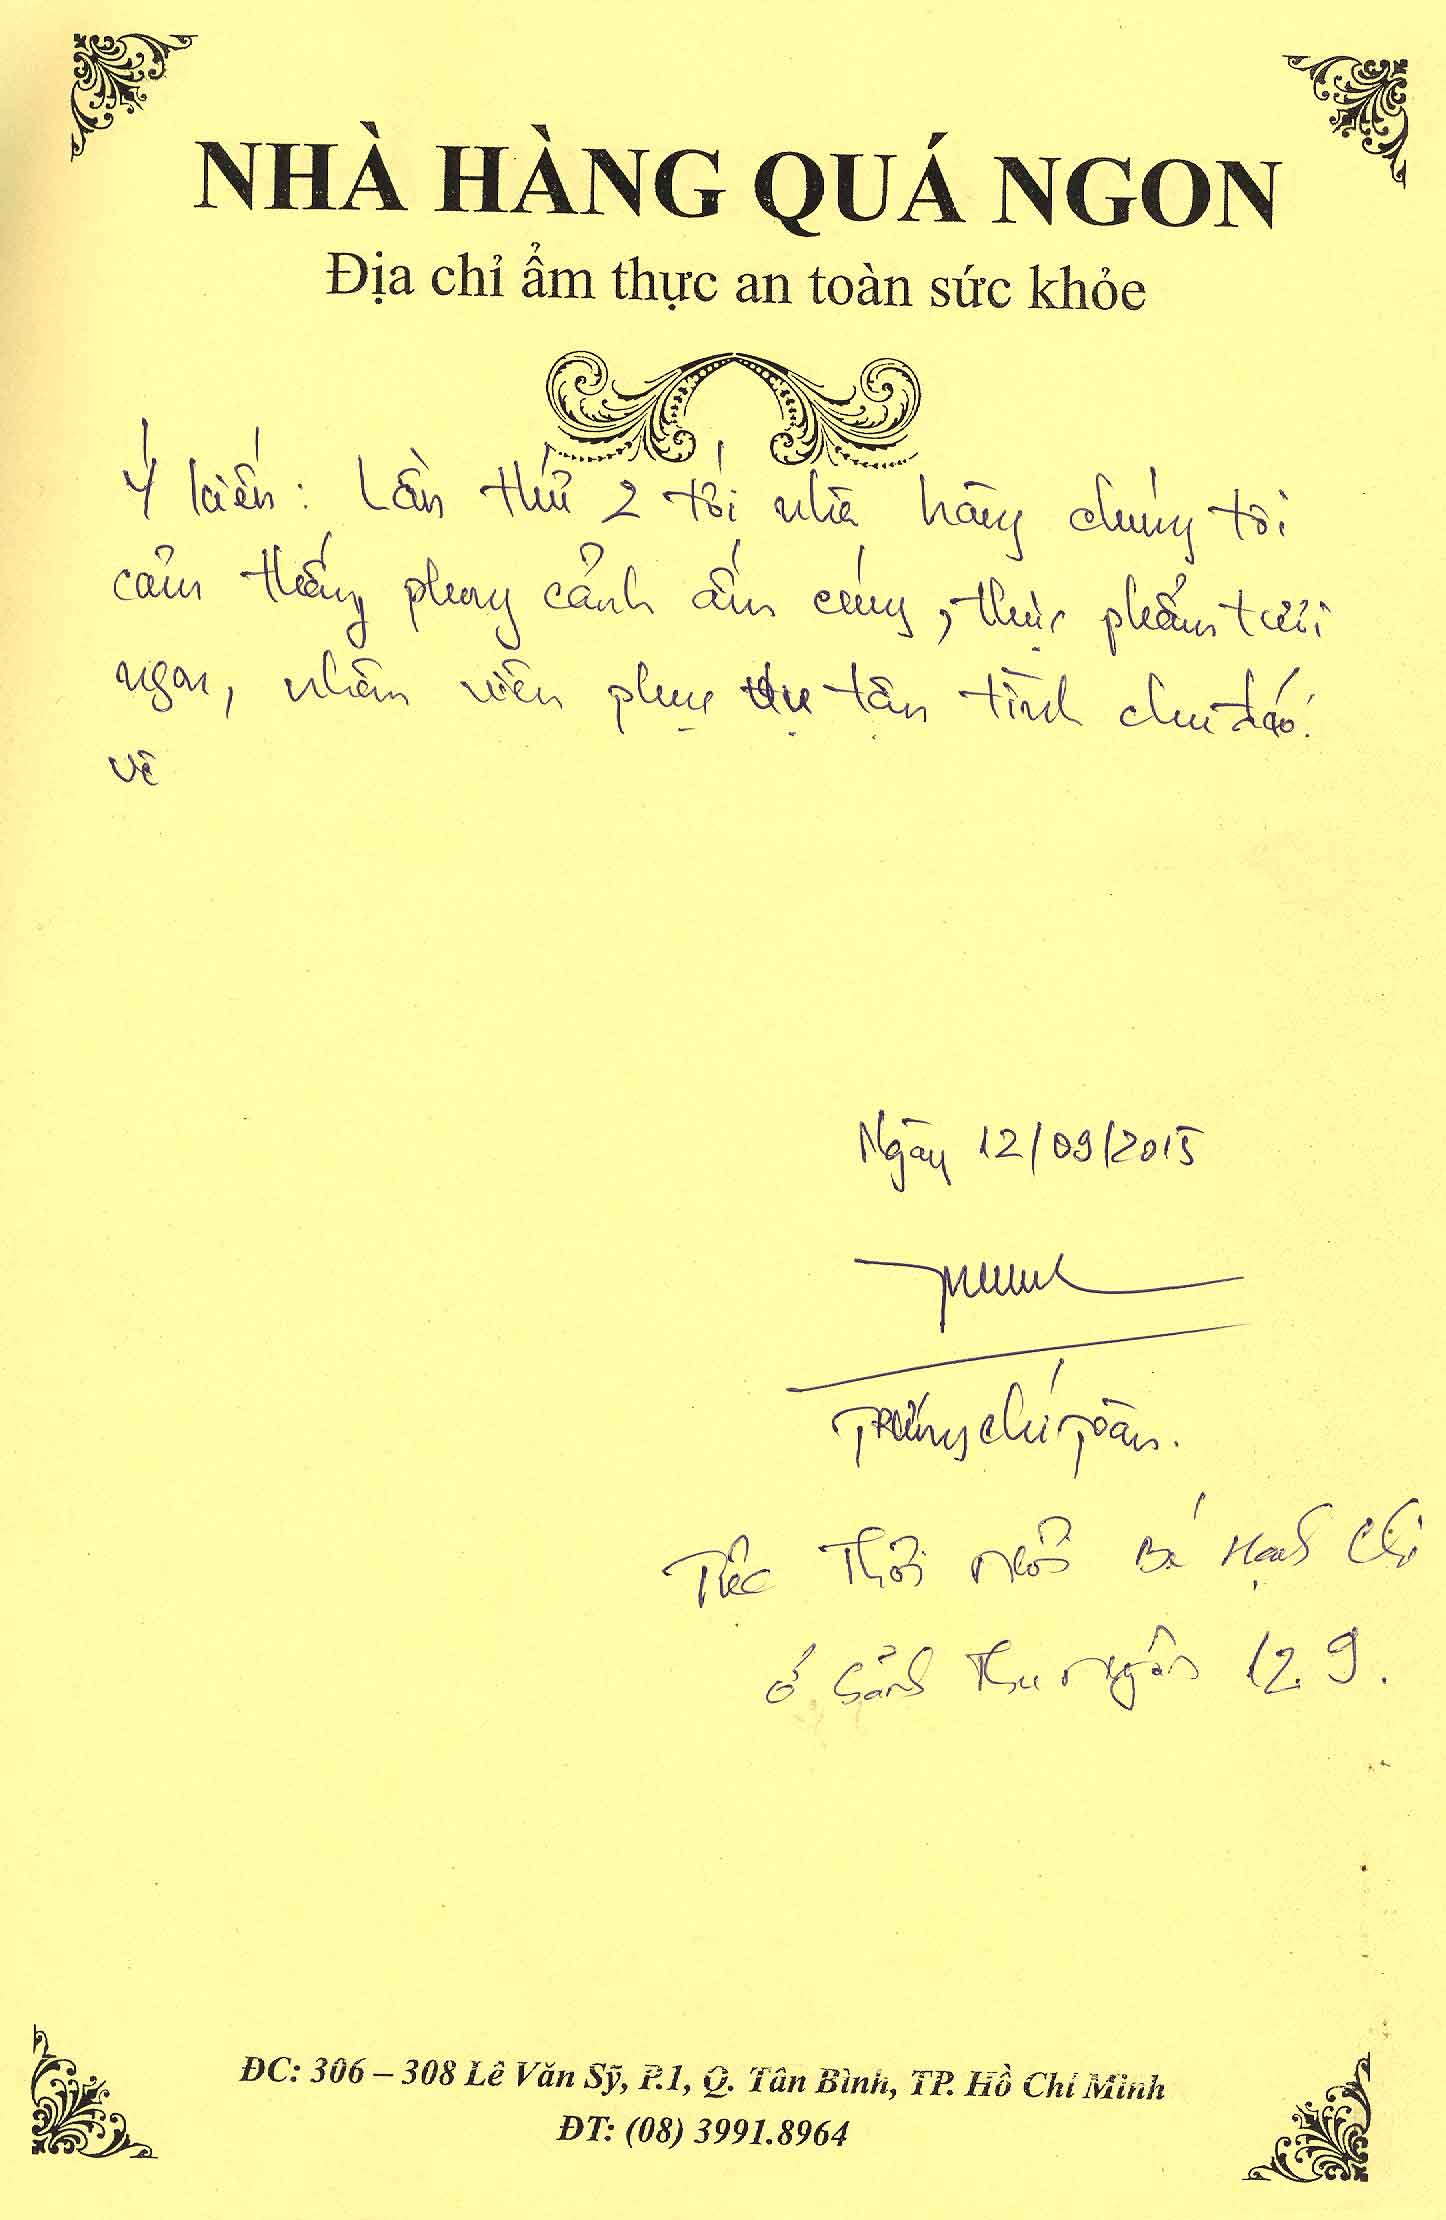 NHÀ HÀNG QUÁ NGON
Địa chỉ ẩm thực an toàn sức khỏe
Ý kiến: Lần thứ 2 tới nhà hàng chúng tôi
cảm thấy phong cảnh ấm cúng, thực phẩm tươi
ngon, nhân viên phục vụ tận tình chu đáo.
về
Ngày 12/09/2015
Trương Chí Toàn.
Tiệc Thôi nôi Bé Hạnh Chi
ở Sảnh Thu ngân 12.9.
ĐC: 306 – 308 Lê Văn Sỹ, P.1, Q. Tân Bình, TP. Hồ Chí Minh
ĐT: (08) 3991.8964